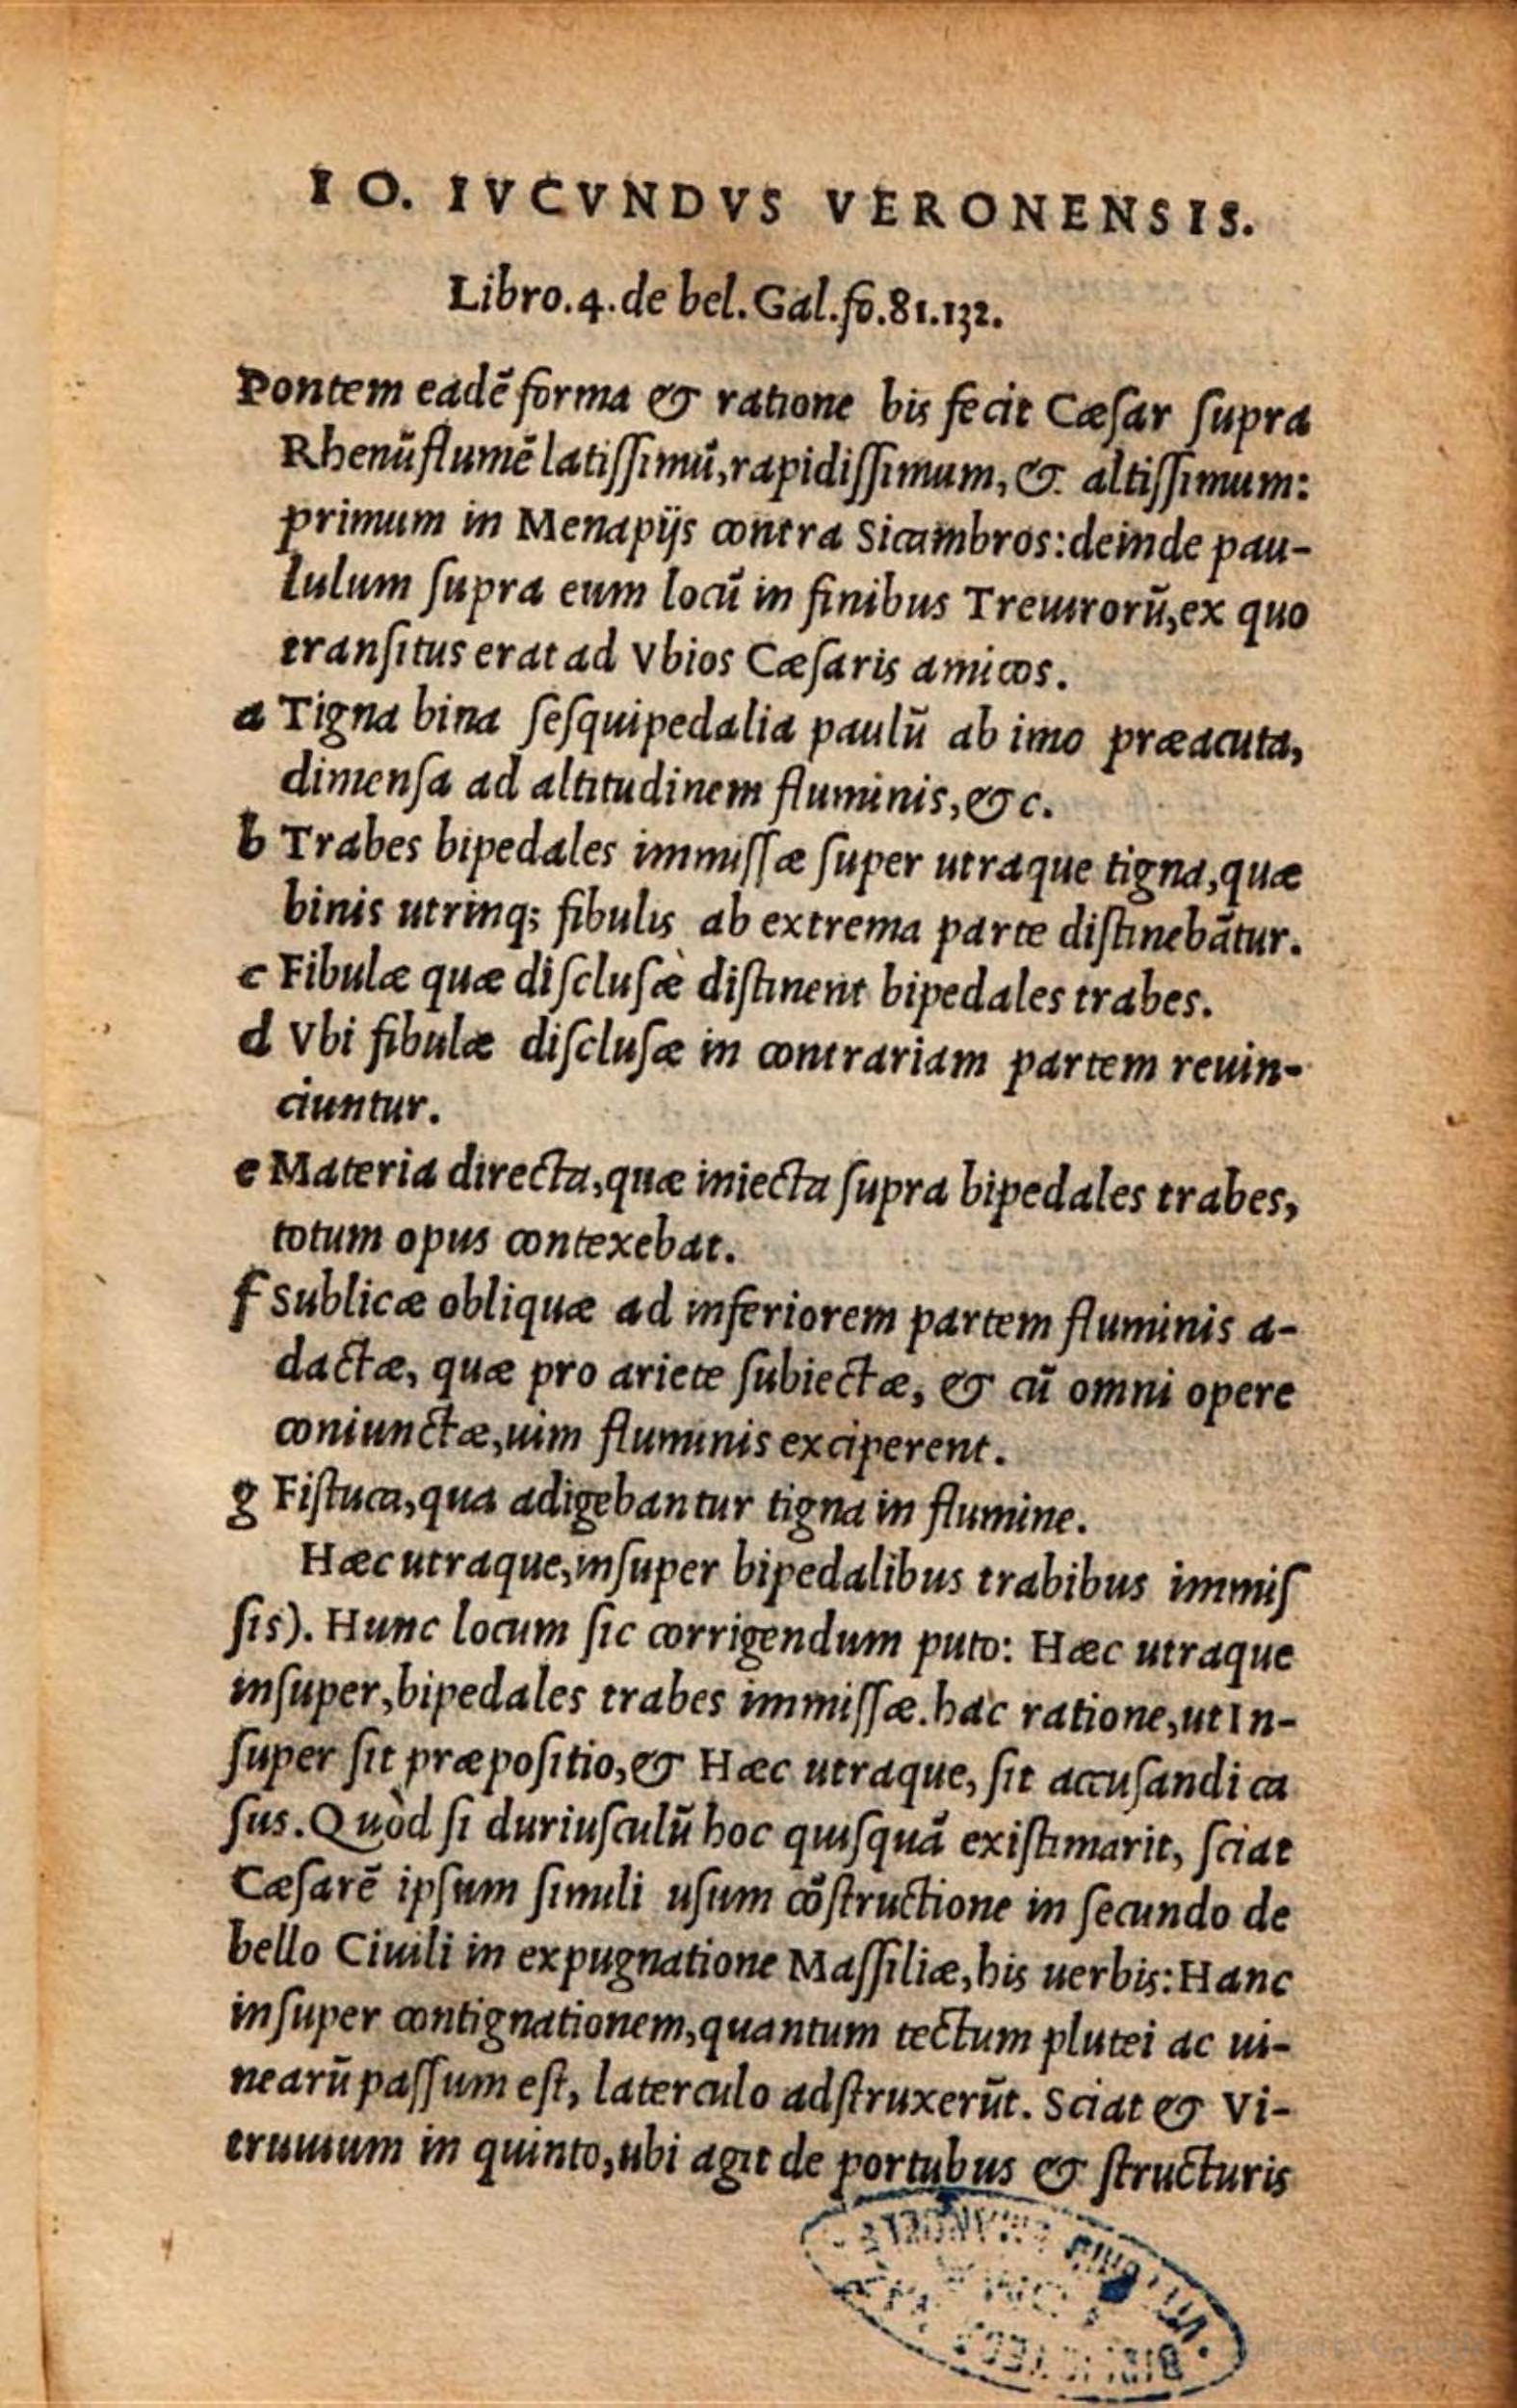 IO. IVCVNDVS VERONENSIS.
Libro.4.de bel.Gal.fo.81.132.
Pontem eadē forma & ratione bis fecit Cæſar ſupra
Rhenū flumē latiſſimū, rapidiſſimum, &. altiſſimum:
primum in Menapijs contra Sicambros: deinde pau-
lulum ſupra eum locū in finibus Treuirorū, ex quo
tranſitus erat ad Vbios Cæſaris amicos.
a Tigna bina ſeſquipedalia paulū ab imo præacuta,
dimenſa ad altitudinem fluminis, &c.
b Trabes bipedales immiſſæ ſuper utraque tigna, quæ
binis utrinq; fibulis ab extrema parte diſtinebātur.
c Fibulæ quæ diſcluſæ diſtinent bipedales trabes.
d Vbi fibulæ diſcluſæ in contrariam partem reuin-
ciuntur.
e Materia directa, quæ iniecta ſupra bipedales trabes,
totum opus contexebat.
f Sublicæ obliquæ ad inferiorem partem fluminis a-
dactæ, quæ pro ariete ſubiectæ, & cū omni opere
coniunctæ, uim fluminis exciperent.
g Fiſtuca, qua adigebantur tigna in flumine.
Hæc utraque, inſuper bipedalibus trabibus immiſ
ſis). Hunc locum ſic corrigendum puto: Hæc utraque
inſuper, bipedales trabes immiſſæ. hac ratione, ut In-
ſuper ſit præpoſitio, & Hæc utraque, ſit accuſandi ca
ſus. Quòd ſi duriuſculū hoc quiſquā exiſtimarit, ſciat
Cæſarē ipſum ſimili uſum cōſtructione in ſecundo de
bello Ciuili in expugnatione Maſſiliæ, his uerbis: Hanc
inſuper contignationem, quantum tectum plutei ac ui-
nearū paſſum eſt, laterculo adſtruxerūt. Sciat & Vi-
truuium in quinto, ubi agit de portubus & ſtructuris